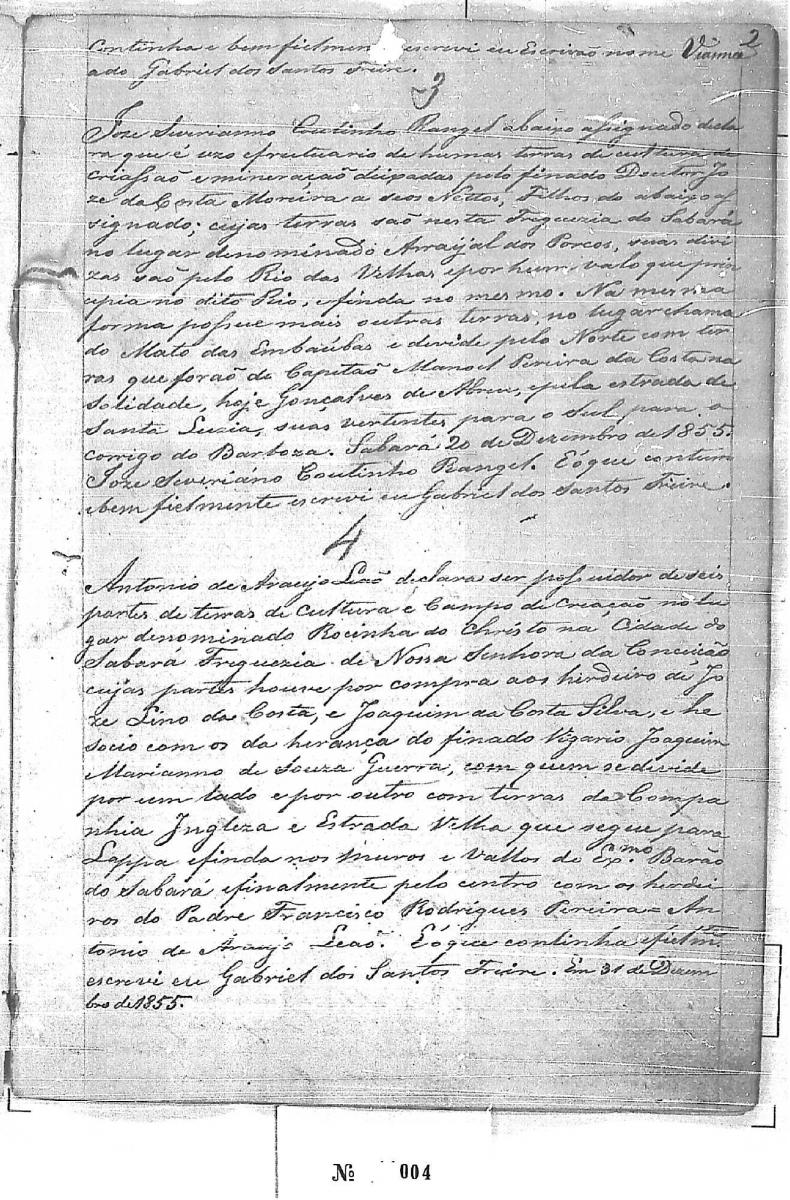 continha e bem fielmen escrevi eu Escrivão nome Vianna 2
ado Gabriel dos Santos Freire.
3
Joze Severianno Coutinho Rangel abaixo assignado decla
ra que é uzo efrutuario de humas terras de cultura de
criassaõ e mineraçaõ deixadas pelo finado Doutor Jo
ze da Costa Moreira a seos Nettos, Filhos do abaixo as
signado; cujas terras saõ nesta Freguezia do Sabará
no lugar denominado Arraijal dos Porcos, suas divi
zas saõ pelo Rio das Velhas e por hum valo que prin
cipia no dito Rio, e finda no mesmo. Na mesma
forma possue mais outras terras, no lugar chama
do Mato das Embaúbas e devide pelo Norte com ter
ras que foraõ do Capitaõ Manoel Pereira da Costa na
Solidade, hoje Gonçalves de Abreu, epela estrada de
Santa Luzia, suas vertentes para o Sul para o
corrigo do Barboza. Sabará 20 de Dezembro de 1855.
Joze Severiáno Coutinho Rangel. Eóque continha
ebem fielmente escrevi eu Gabriel dos Santos Freire.
4
Antonio de Araujo Leaõ declara ser possuidor de seis
partes de terras de cultura e Campo de Criaçaõ no lu
gar denominado Rocinha do Christo na Cidade do
Sabará Freguezia de Nossa Senhora da Conceiçaõ
cujas partes houve por compra aos herdeiro de Jo
ze Lino da Costa, e Joaquim da Costa Silva, e he
socio com os da herança do finado Vigario Joaquim
Marianno de Souza Guerra, com quem se divide
por um lado e por outro com terras da Compa
nhia Ingleza e Estrada Velha que segue para
Lappa efinda nos muros e Vallos do Exmo. Barão
do Sabará efinalmente pelo centro com os herdei
ros do Padre Francisco Rodrigues Pereira= An
tonio de Araujo Leaõ. Eóque continha efielm.
escrevi eu Gabriel dos Santos Freire. Em 31 de Dezem
bro de 1855.
№ 004